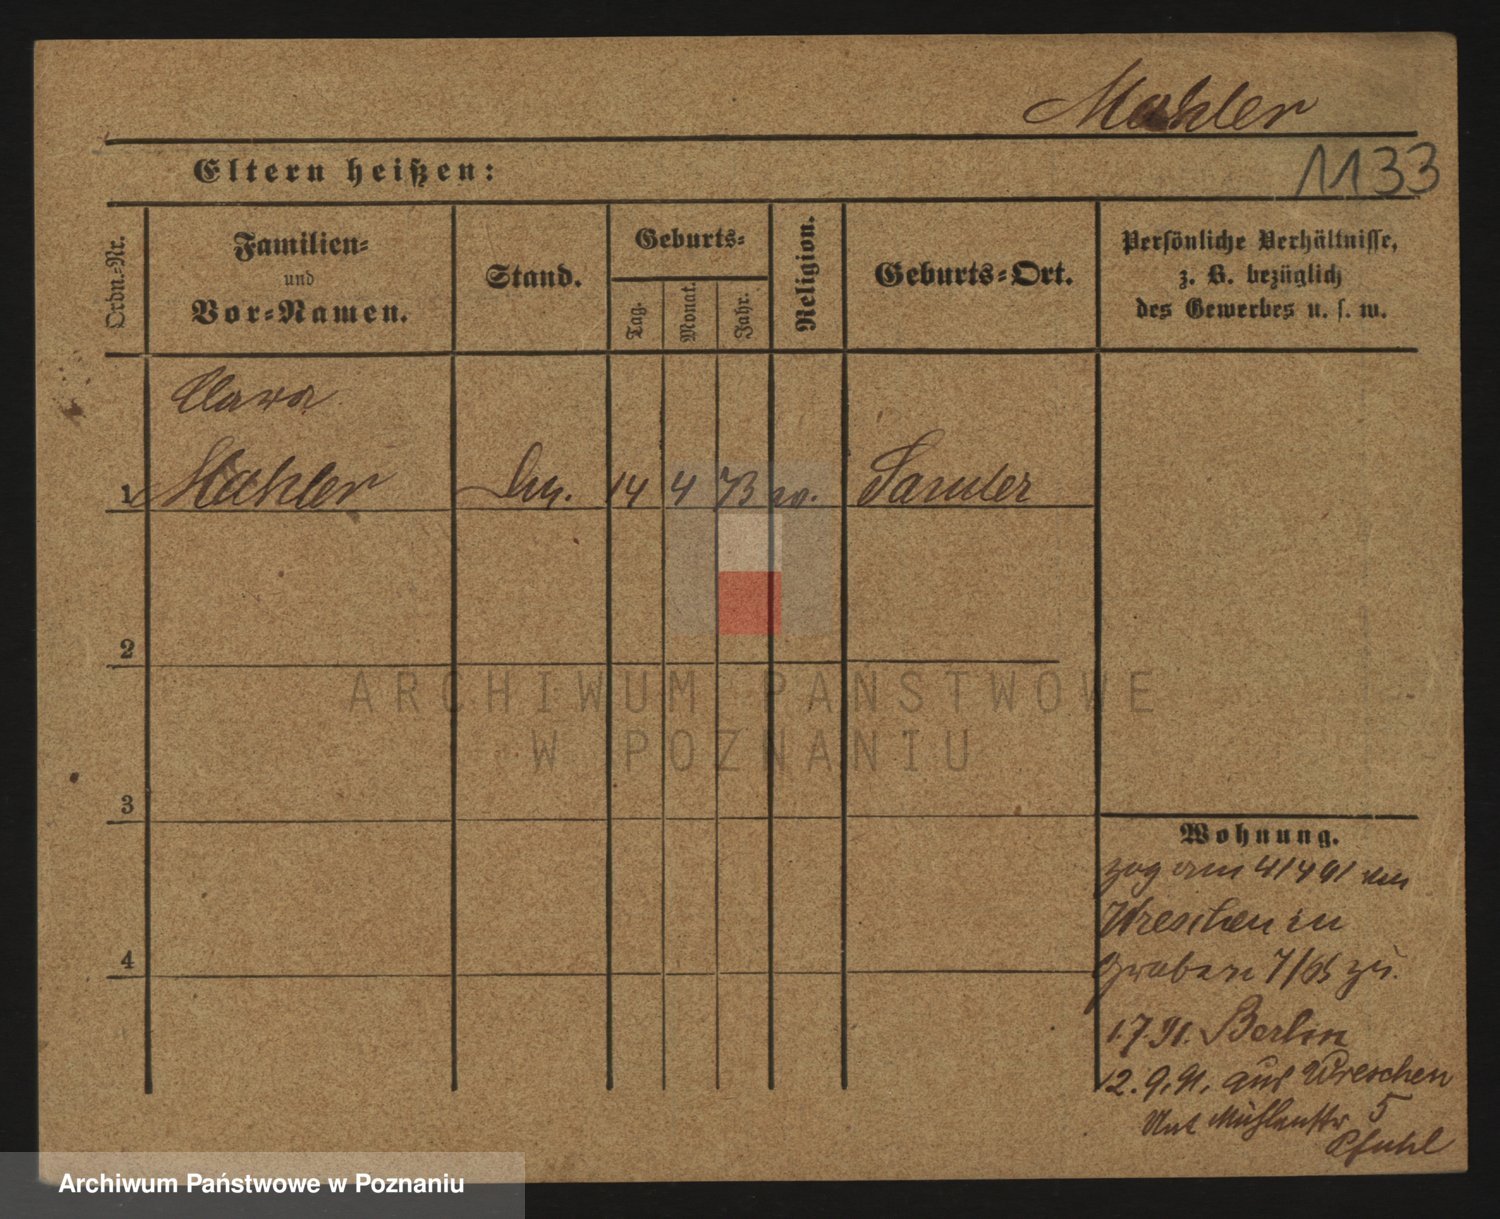 Mahler
1133
Eltern heißen:
Ordn.-Nr.
Familien-
und
Vor-Namen.
Stand.
Geburts-
Tag.
Monat.
Jahr.
Religion.
Geburts-Ort.
Persönliche Verhältnisse,
z. B. bezüglich
des Gewerbes u. s. w.
Clara
1 Mahler 14 4 73 Samter
2
ARCHIWUM PAŃSTWOWE
W POZNANIU
3
4
Wohnung.
zog am 4/4 91 von
Wreschen in
Graben 7/
1.7.91. Berlin
12.9.91. aus Wreschen
Unt Mühlenstr 5
Pfuhl
Archiwum Państwowe w Poznaniu